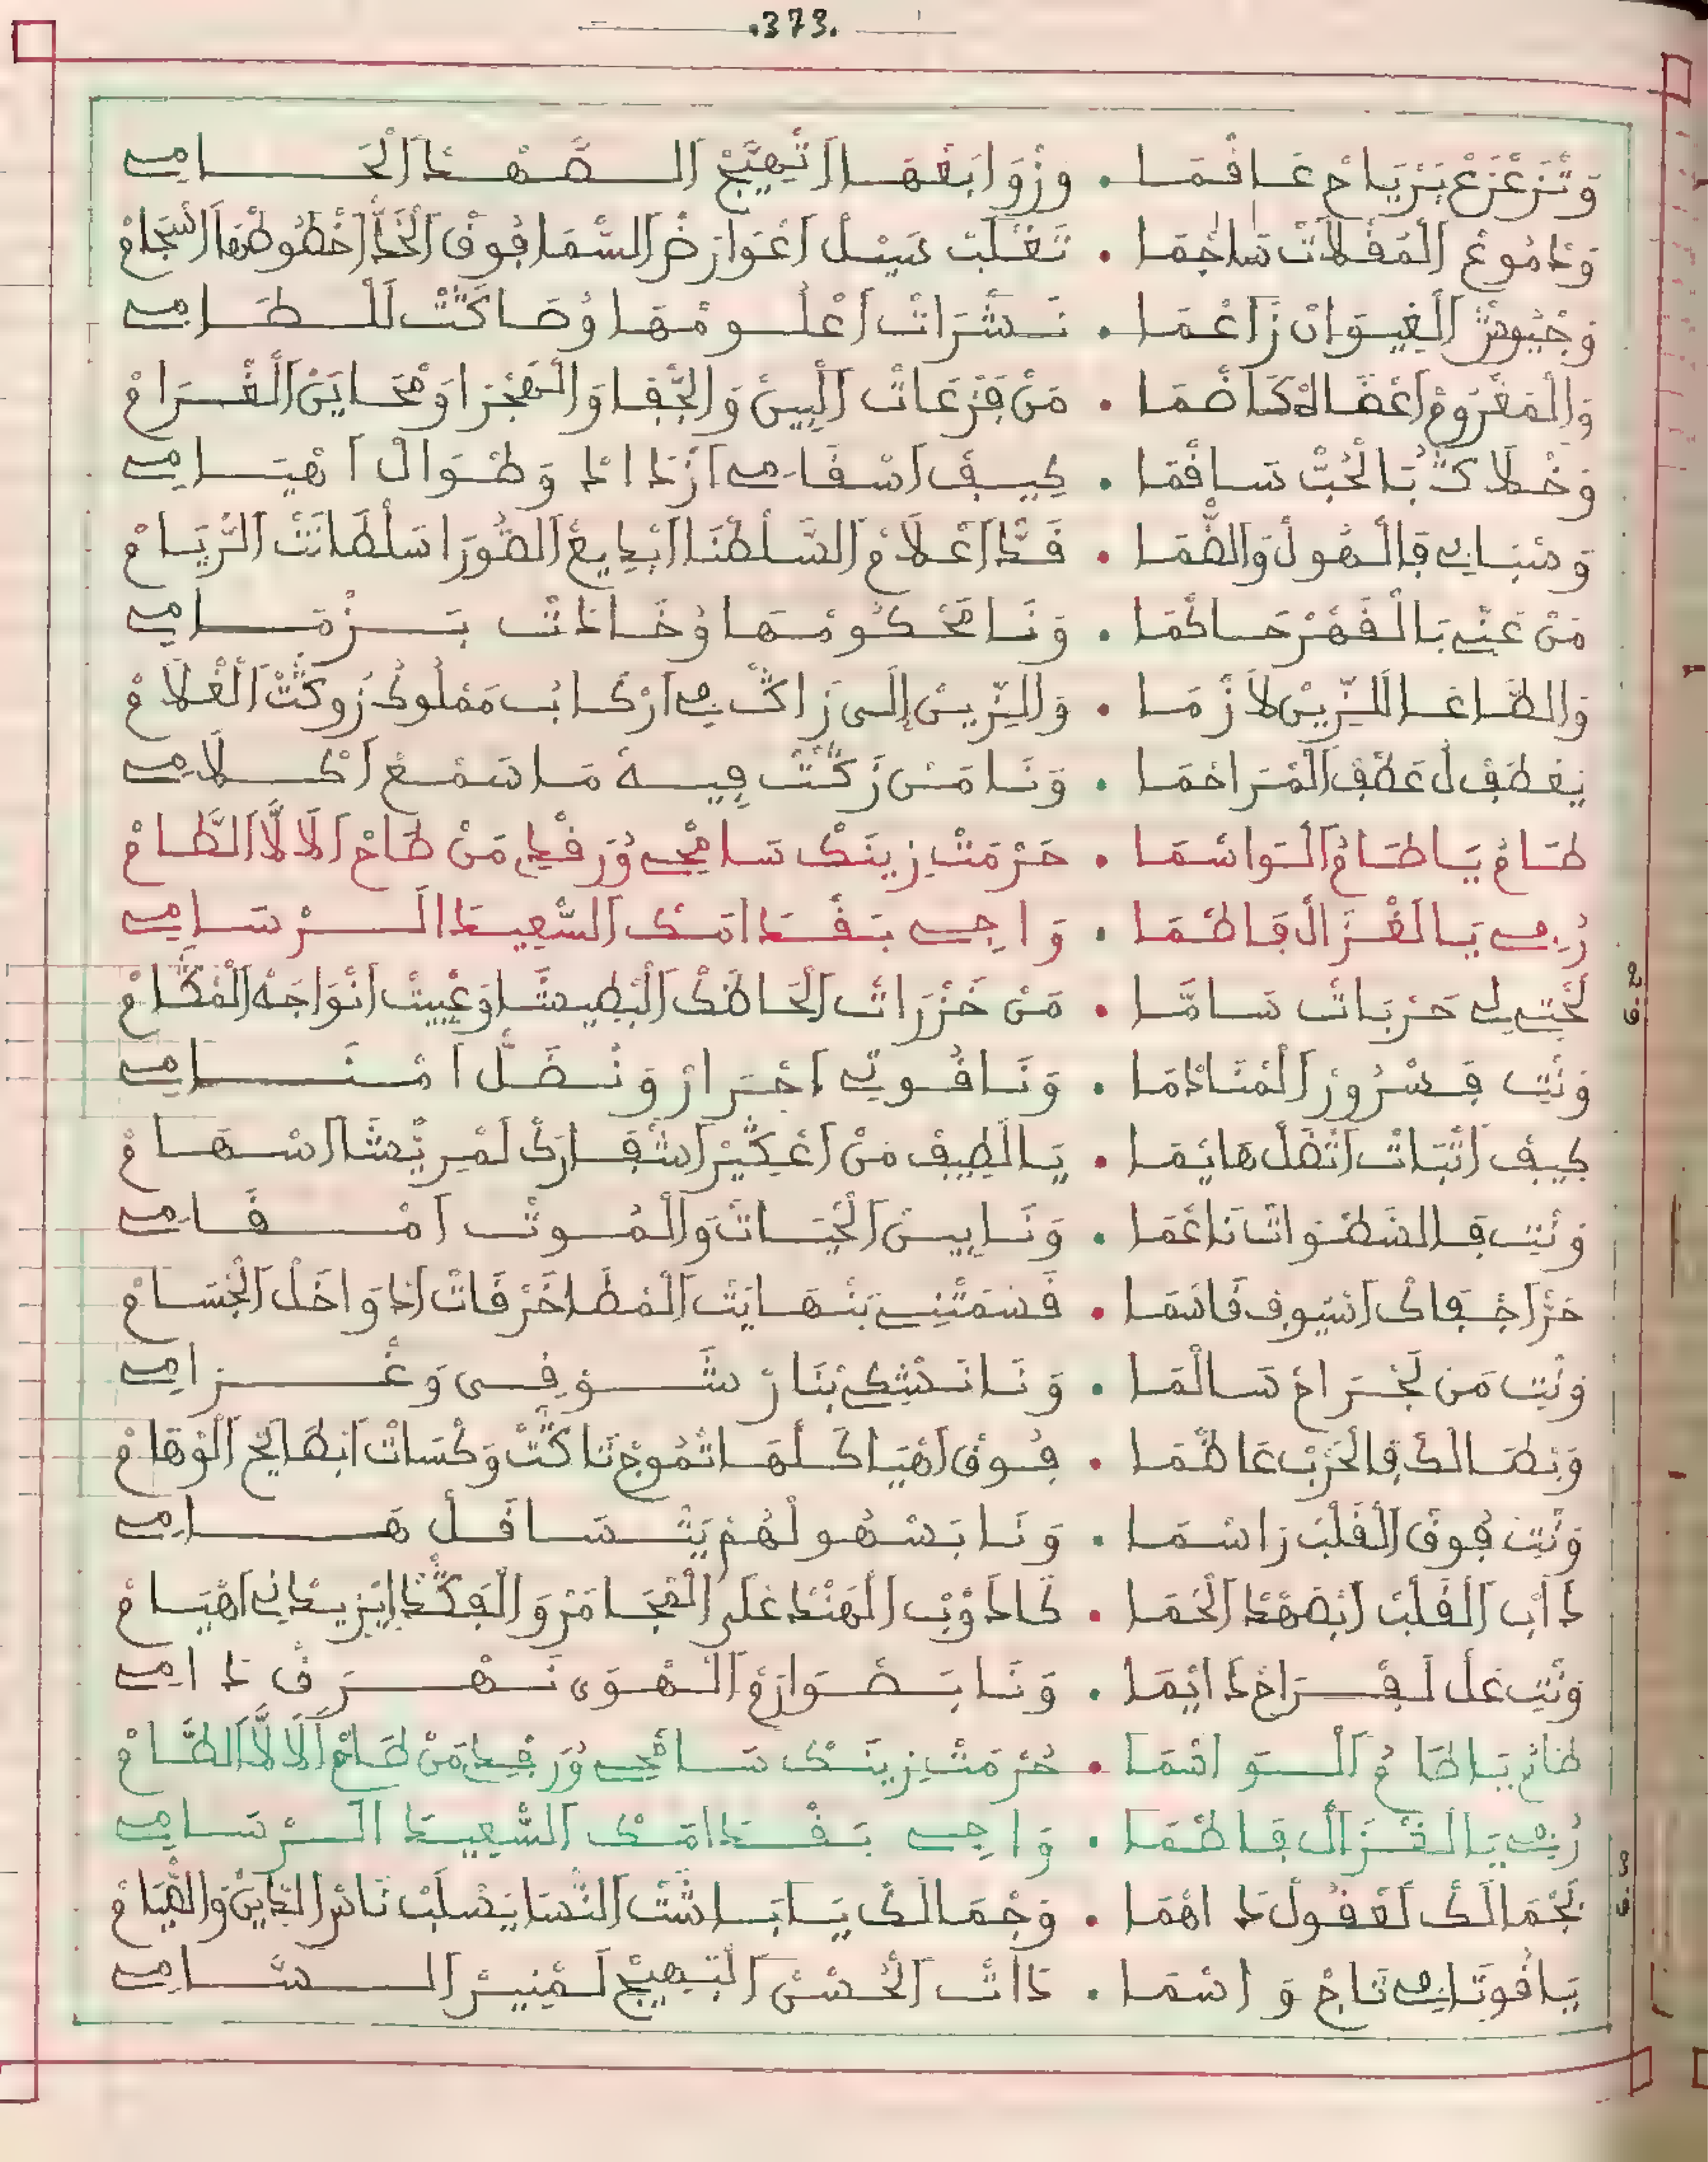 .373.
وَتْزَعْزَعْ بَرْيَاحْ عَاقْمَا . وَزْوَابَعْهَا اتْهِيَّجْ الصَّهْدْ الْحَامِي
وَدْمُوعْ الْمُقْلَاتْ سَاجْمَا . تَغْلَبْ سَيْلْ اعْوَارَضْ السْمَا فُوقْ الْخَدّْ اخْطُوطْهَا اسْجَامْ
وَجْيُوشْ الْغِيوَانْ زَاعْمَا . نَشْرَاتْ اعْلُومْهَا وُصَاكَتْ لَلْطَامِي
وَالْمَغْرُومْ اعْضَاهْ كَاضْمَا . مَنْ فَزْعَاتْ الْبِينْ وَالْجْفَا وَالْهَجْرَا وَمْحَايَنْ الْغْرَامْ
وَخْلَاكَتْ بَالْحُبّْ سَاقْمَا . كِيفْ اسْقَامِي ازْدَادْ وَطْوَالْ اهْيَامِي
وَمْبَاتِي فَالْهُولْ وَالظْمَا . قَدّْ اعْلَامْ السَّلْطْنَا ابْدِيعْ الصُّورَا سَلْطَانَتْ الرّْيَامْ
مَنْ عَنِّي بَالْقَهْرْ حَاكْمَا . وَنَا مَحْكُومْهَا وُخَادَتْ بَزْمَامِي
وَالطَّاعَا لَلزِّينْ لَازْمَا . وَالزِّينْ إِلَى زَاكَتْ فِي ارْكَابْ مَمْلُوكْ زُوكَتْ الْغْلَامْ
يَعْطَفْ لُ عَطْفْ الْمْرَاحْمَا . وَنَا مَنْ زَكْتْ فِيهْ مَا سْمَعْ اكْلَامِي
طَامُ يَا طَامُ الْوَاشْمَا . حَرْمَتْ زِينَكْ سَامْحِي وُرَفْدِي مَنْ طَاحْ الَا لَّا الطَّامْ
رِمِي يَا لَغْزَالْ فَاطْمَا . وَاجِي بَقْدَامَكْ السّْعِيدْ الَرْسَامِي
لَحْتِي لِي حَرْبَاتْ سَامَّا . مَنْ خَزْرَاتْ الْحَاظَكْ الْبْطِيشَا وَعْيِيتْ انْوَاجَهْ الْمْكَامْ
وَنْتِ فَسْرُورْ الْمْنَادْمَا . وَنَا قُوتِي احْرَارْ وَنْضَلّْ امْنَامِي
كِيفْ اتْبَاتْ اتْضَلْ هَايْمَا . يَا لَطِيفْ مَنْ اعْكِيرْ اشْفَارَكْ لَمْرِيّْشَا اسْهَامْ
وَنْتِ فَالصَّطْوَاتْ نَاعْمَا . وَنَا بِينْ الْحْيَاتْ وَالْمُوتْ امْقَامِي
حَرّْ اجْفَاكْ اسْيُوفْ قَاسْمَا . قَسْمَتْنِي بَنْهَايَتْ الْمْطَا خَرْقَاتْ ادْوَاخَلْ الْجْسَامْ
وَنْتِ مَنْ لَجْرَاحْ سَالْمَا . وَنَا نَشْكِي بْنَارْ شُوقِي وَغْرَامِي
وَبْطَالَكْ فَالْحَرْبْ عَاظْمَا . فُوقْ اهْيَاكَلْهَا تْمُوجْ تَاكَتْ وَكْسَاتْ ابْطَايَحْ الْوْهَامْ
وَنْتِ فُوقْ الْقَلْبْ رَاسْمَا . وَنَا بَسْهُولْهُمْ يَتْسَاقَلْ هَامِي
دَابْ الْقَلْبْ ابْصَهْدْ الْحْمَا . كَادْوُبْ الْهَنْدْ عَلَى الْمْجَامَرْ وَالْفَكْدْ ايْزِيدْنِي اهْيَامْ
وَنْتِ عْلَ لَفْرَاحْ دَايْمَا . وَنَا بَصْوَارَمْ الْهْوَى نَهْرَقْ دَامِي
طَامُ يَا طَامُ الْوَاشْمَا . حُرْمَتْ زِينَكْ سَامْحِي وُرَفْدِي مَنْ طَاحْ الَا لَّا الطَّامْ
رِمِي يَا لَغْزَالْ فَاطْمَا . وَاجِي بَقْدَامَكْ السّْعِيدْ الَرْسَامِي
بَجْمَالَكْ لَعْقُولْ دَاهْمَا . وَجْمَالَكْ يَا بَاشَتْ النّْسَا يَصْلَبْ نَاسْ الدِّينْ وَالصّْيَامْ
يَاقُوتَا فِي تَاجْ وَاسْمَا . دَاتْ الْحُسْنْ الْبْهِيجْ لَمْنِيرْ السَّامِي